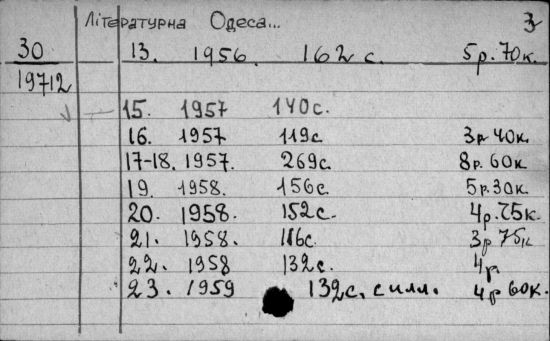 Літературна Одеса... 3
30 13. 1956. 162 с. 5р.70к.
19712
15. 1957 140с.
16. 1957 119с 3р 40к.
17-18. 1957. 269с. 8р. 60к
19. 1958. 156с. 5р.30к.
20. 1958. 152с. 4р.75к.
21. 1958. 116с. 3р 75к
22. 1958 132с. 4р.
23. 1959 132с. с илл. 4р 60к.